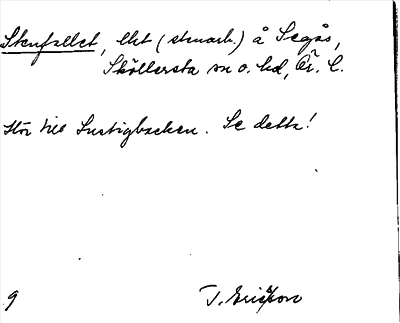 Stenfallet, lht (stenark.) å Segås,
Sköllersta sn o. hd, Ör. l.
Hör till Lustigbacken. Se detta!
9 T. Ericsson